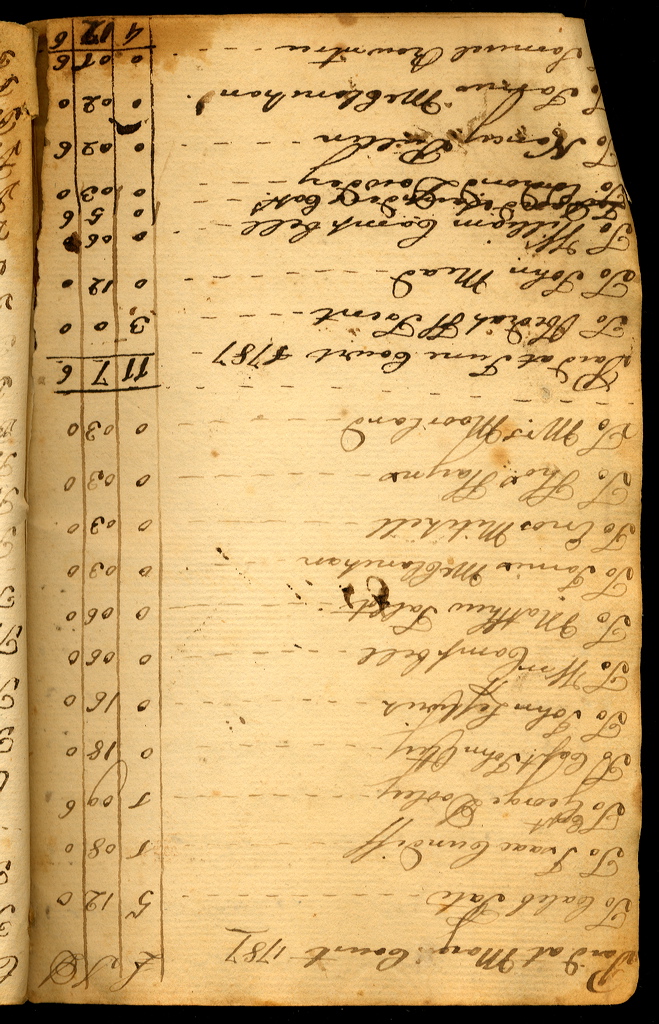 Paid at May Court 1787 £ S D
To Caleb Tate 5 12 0
To Isaac Cundiff 1 08 0
To Capt George Dooley 1 09 6
To Capt John Otey 0 18 0
To John Leftwich 0 16 0
To Wm Campbell 0 06 0
To Matthew Talbot 0 06 0
To James McClanihan 0 03 0
To Enos Mitchell 0 03 0
To Thos Haynes 0 03 0
To Mrs Moorland 0 03 0
11 7 6
Paid at June Court 1787
To Obediah H Trent 3 0 0
To John Mead 0 12 0
To William Campbell 0 06 0
0 5 6
To Edmond Dowdey 0 03 0
To Nancy Quillin 0 02 6
To James McClanihan 0 02 0
To Samuel 0 01 6
4 12 6